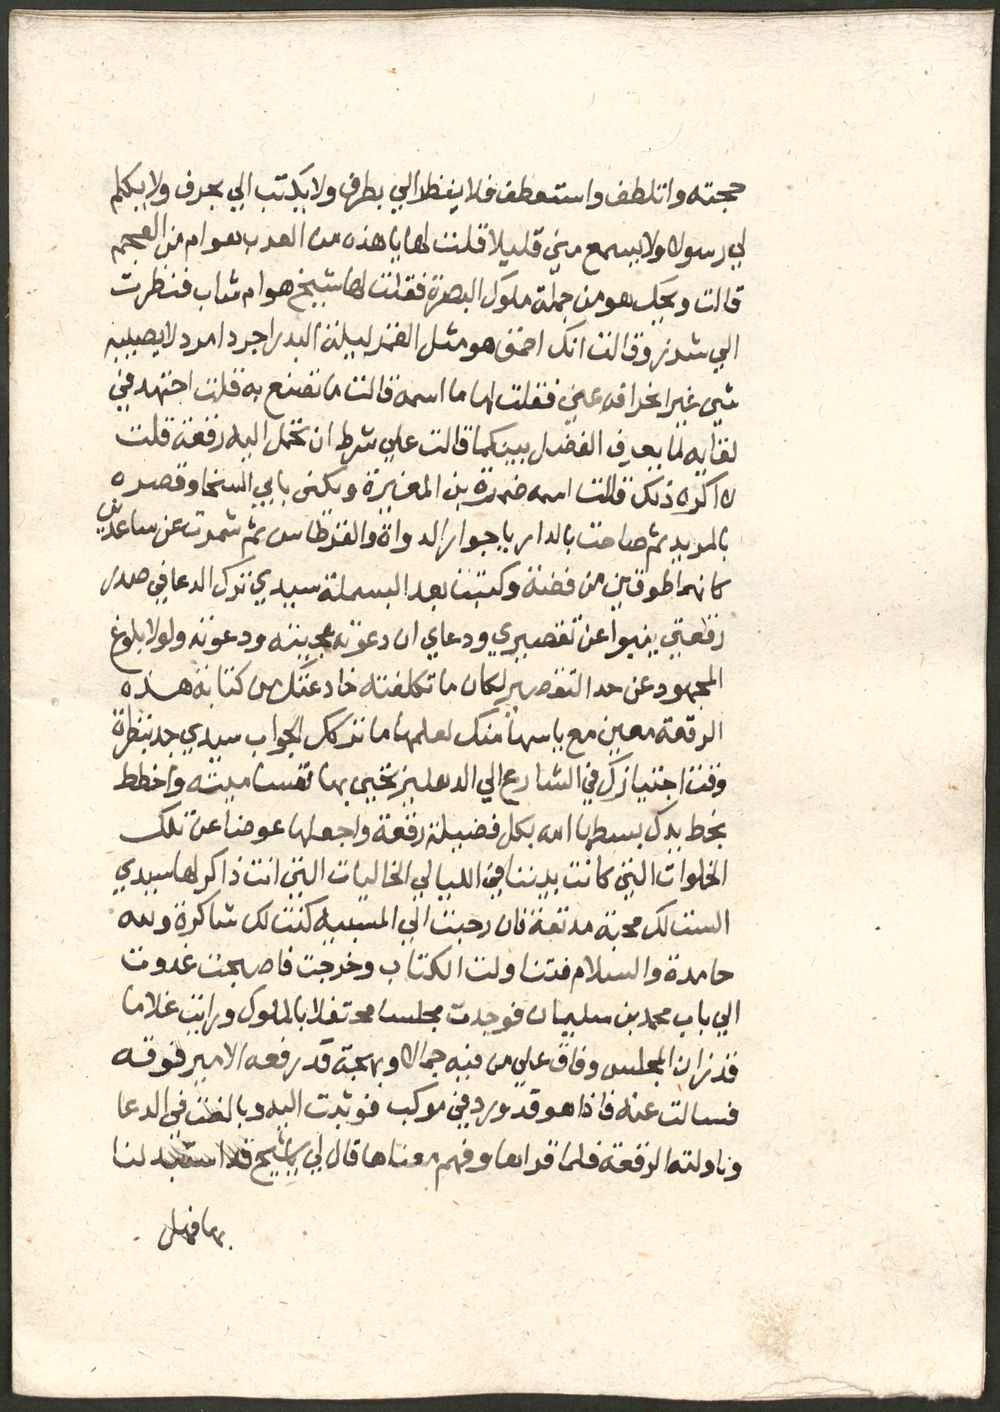 حجته واتلطف واستعطف فلا ينظر الي بطرف ولا يكتب الي بحرف ولا يكلم
لي رسولا ولا يسمع مني قليلا قلت لها يا هذه من العرب هو ام من العجم
قالت ويحك هو من جملة ملوك البصرة فقلت لها شيخ هو ام شاب فنظرت
الي شذرا وقالت انك احمق هو مثل القمر ليلة البدر اجرد امرد لا يعيبه
شي غير انحرافه عني فقلت لها ما اسمه قالت ما تصنع به قلت اجتهد في
لقايه لما يعرف الفضل بينكما قالت علي شرط ان تحمل اليه رقعة قلت
لا اكره ذلك قالت اسمه ضمرة بن المغيرة ويكنى بابي السخا وقصره
بالمربد ثم صاحت بالدار يا جوار الدواة والقرطاس ثم شمرت عن ساعدين
كانهما طوقين من فضة وكتبت بعد البسملة سيدي ترك الدعا في صدر
رقعتي ينبوا عن تقصيري ودعاي ان دعوته هجينة ودعونة ولولا بلوغ
المجهود عن حد التقصير لكان ما تكلفته خادمتك من كتابة هذه
الرقعة معين مع ياسها منك لعلمها ما تركك الجواب سيدي جد بنظرة
وقت اجتيازك في الشارع الي الدهليز تحيي بها نفسا ميتة واخطط
بخط يدك بسطها الله بكل فضيلة رقعة واجعلها عوضا عن تلك
الخلوات التي كانت بيننا في الليالي الخاليات التي انت ذاكر لها سيدي
الست لك محبة مدنفة فان رحبت الي المسيله كنت لك شاكرة ولله
حامدة والسلام فتناولت الكتاب وخرجت فاصبحت غدوت
الي باب محمد بن سليمان فوجدت مجلسا محتفلا بالملوك ورايت غلاما
قد زان المجلس وفاق علي من فيه جمالا وبهجة قد رفعه الامير فوقه
فسالت عنه فاذا هو قد ورد في موكب فوثبت اليه وبالغت في الدعا
وناولته الرقعة فلما قراها وفهم معناها قال لي يا شيخ قد استبدلنا
بها فهل